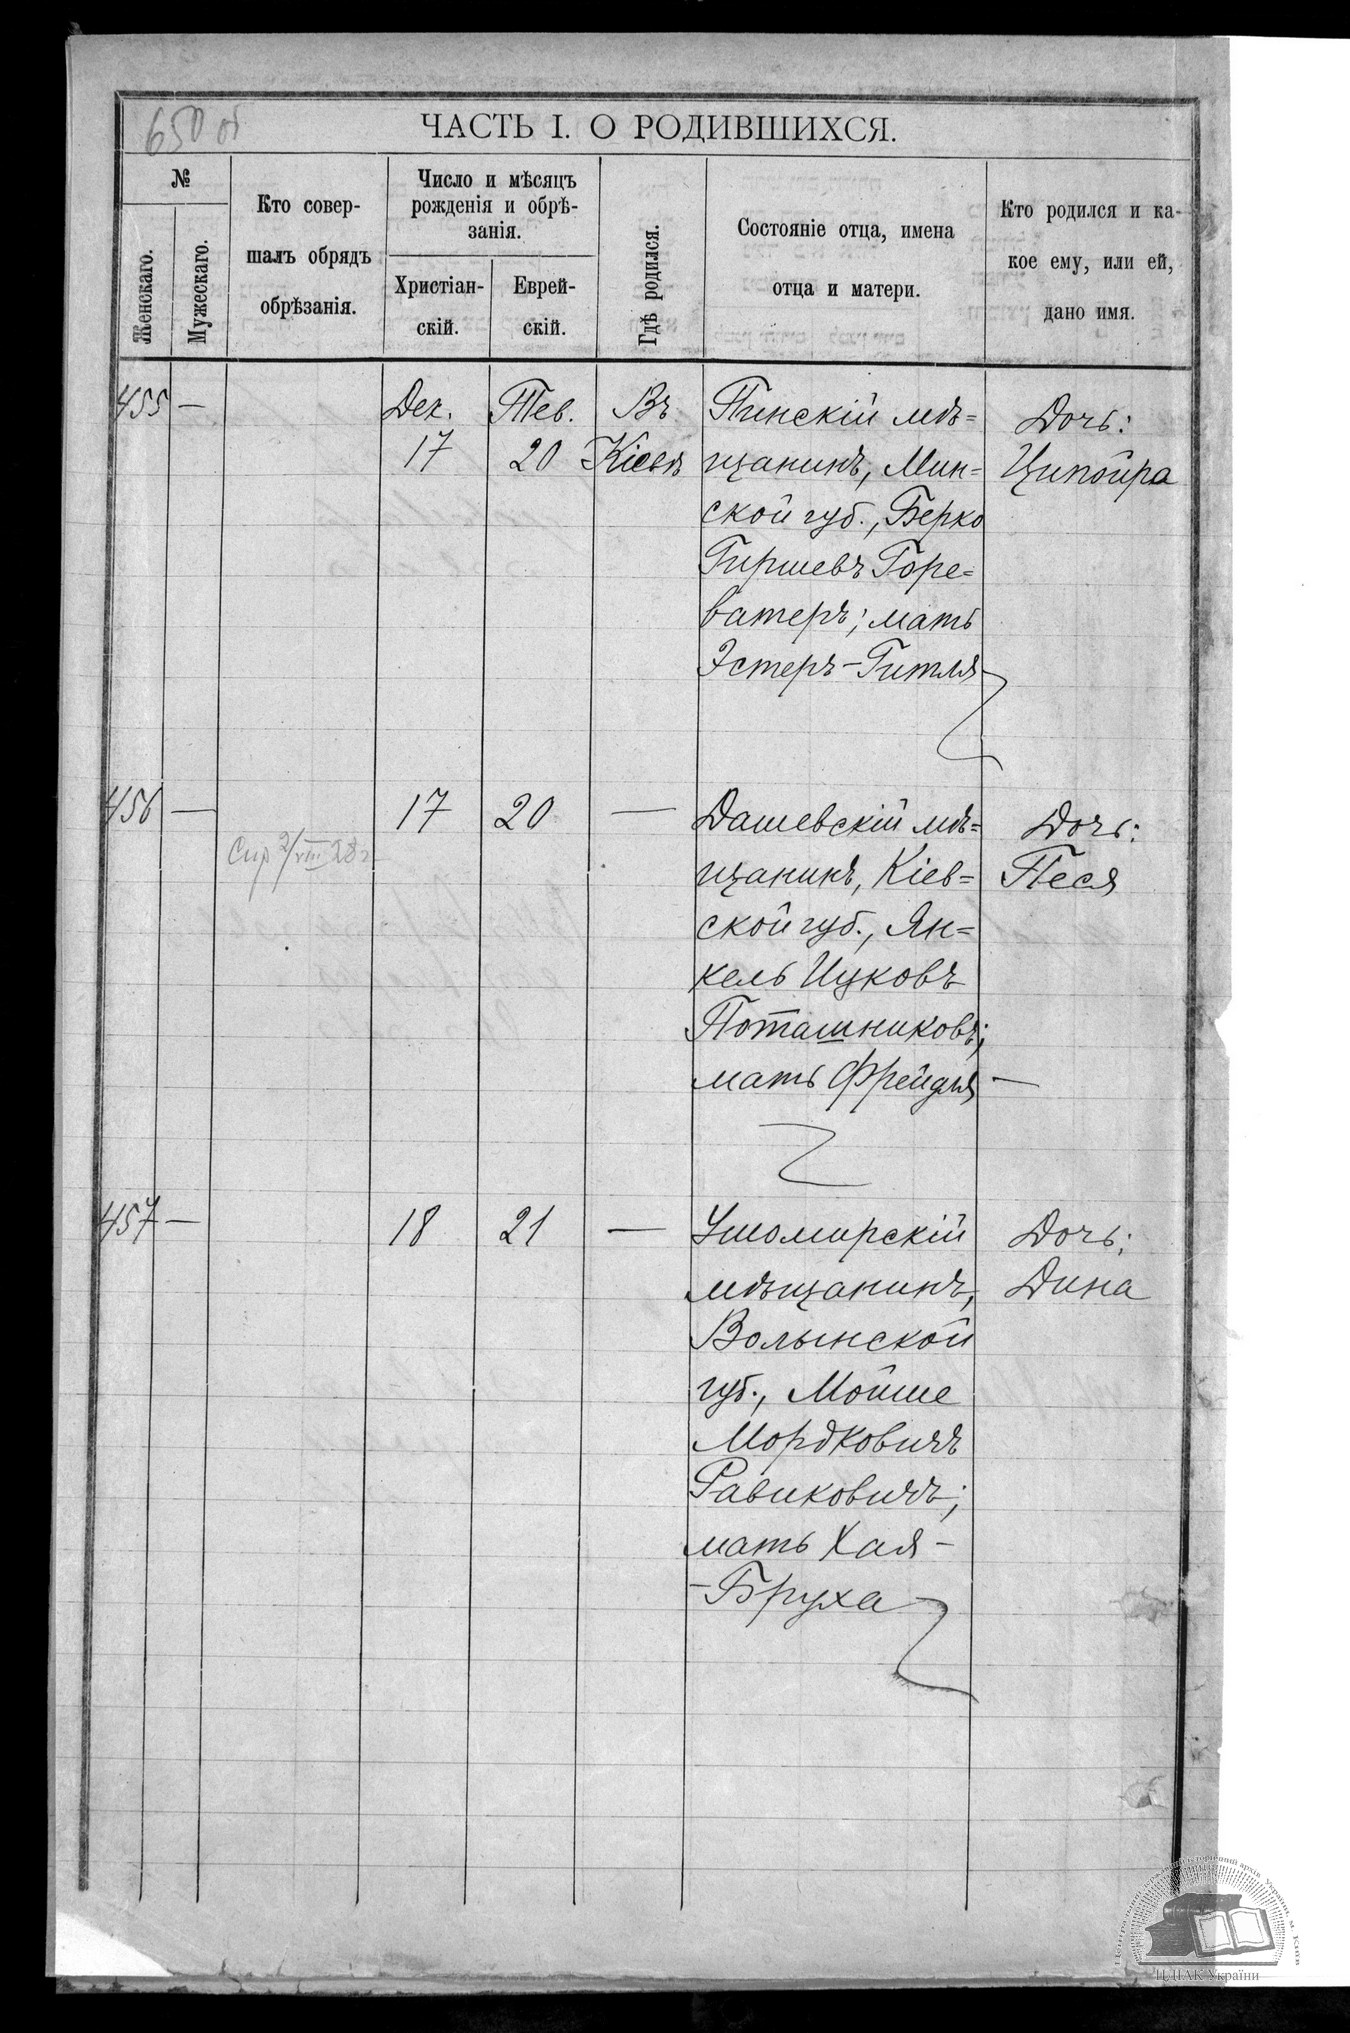 650 об
ЧАСТЬ I. О РОДИВШИХСЯ.
№
Женскаго.
Мужескаго.
Кто совер-
шалъ обрядъ
обрѣзанія.
Число и мѣсяцъ
рожденія и обрѣ-
занія.
Христіан-
скій.
Еврей-
скій.
Гдѣ родился.
Состояніе отца, имена
отца и матери.
Кто родился и ка-
кое ему, или ей,
дано имя.
455 —
Дек.
17
Тев.
20
Въ
Кіевѣ
Пинскій мѣ=
щанинъ, Мин=
ской губ., Берко
Гиршевъ Горе=
ватеръ; мать
Эстеръ-Гитля
Дочь:
Ципойра
456 —
17
20
—
Дашевскій мѣ=
щанинъ, Кіев=
ской губ., Ян=
кель Ицковъ
Поташниковъ;
мать Фрейдля —
Дочь:
Песя
2/VIII 28 г
457 —
18
21
—
Ушомирскій
мѣщанинъ,
Волынской
губ., Мойше
Мордковичъ
Равиковичъ;
мать Хая-
-Бруха
Дочь:
Дина
ЦДІАК України